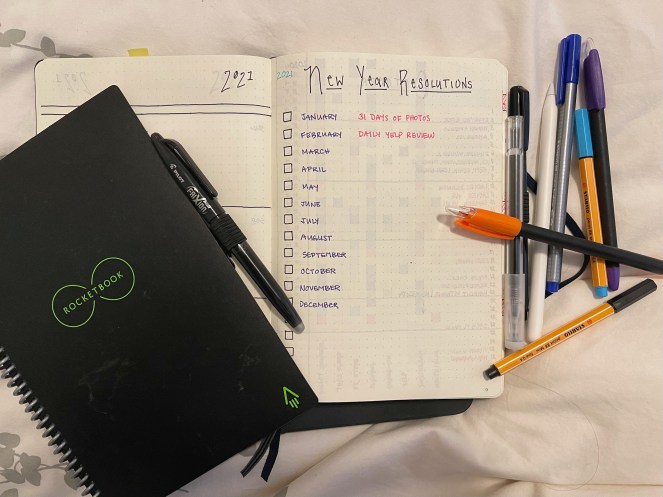 2021
2021
NEW YEAR RESOLUTIONS
JANUARY 31 DAYS OF PHOTOS
FEBRUARY DAILY YELP REVIEW
MARCH
APRIL
MAY
JUNE
JULY
AUGUST
SEPTEMBER
OCTOBER
NOVEMBER
DECEMBER
PILOT
FriXion
ROCKETBOOK
STABILO